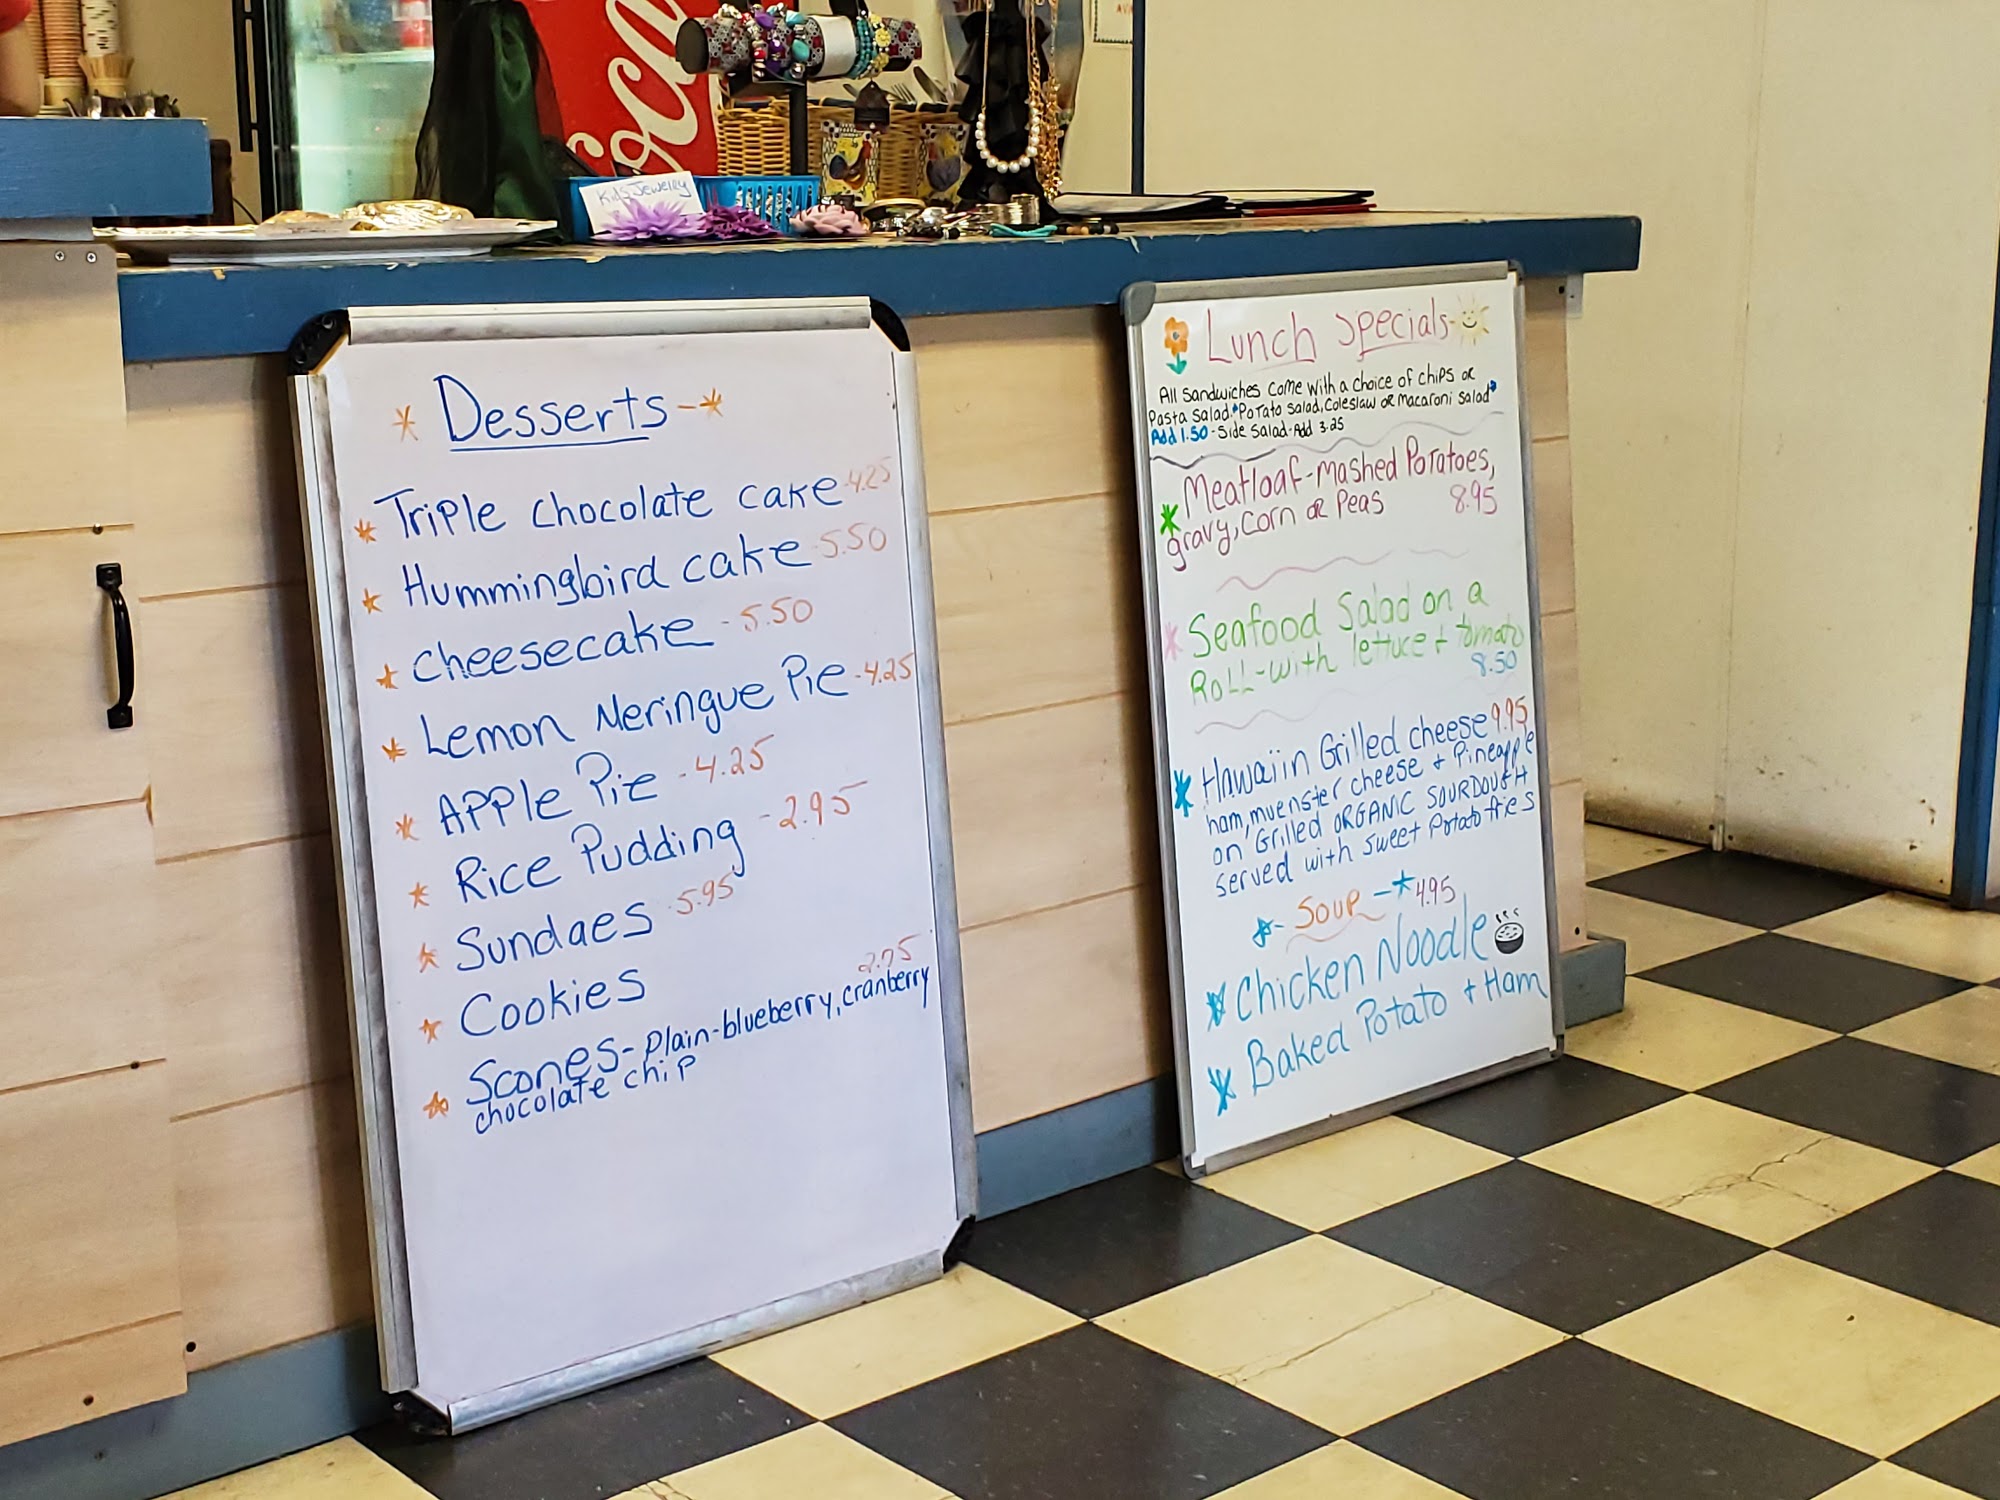 Coca
Kids Jewelry
Desserts
Triple chocolate cake 4.25
Hummingbird cake 5.50
cheesecake - 5.50
Lemon Meringue Pie - 4.25
APPle Pie - 4.25
Rice Pudding - 2.95
Sundaes 5.95
Cookies
2.75
Scones - Plain - blueberry, cranberry
chocolate chip
Lunch Specials
All sandwiches come with a choice of chips or
Pasta salad Potato salad, Coleslaw or Macaroni salad
Add 1.50 - Side Salad - Add 3.25
Meatloaf - mashed Potatoes,
gravy, Corn or Peas 8.95
Seafood Salad on a
Roll - with lettuce + tomato
8.50
Hawaiin Grilled cheese 9.95
ham, muenster cheese + Pineapple
on Grilled ORGANIC SOURDOUGH
served with sweet Potato fries
Soup - 4.95
Chicken Noodle
Baked Potato + Ham